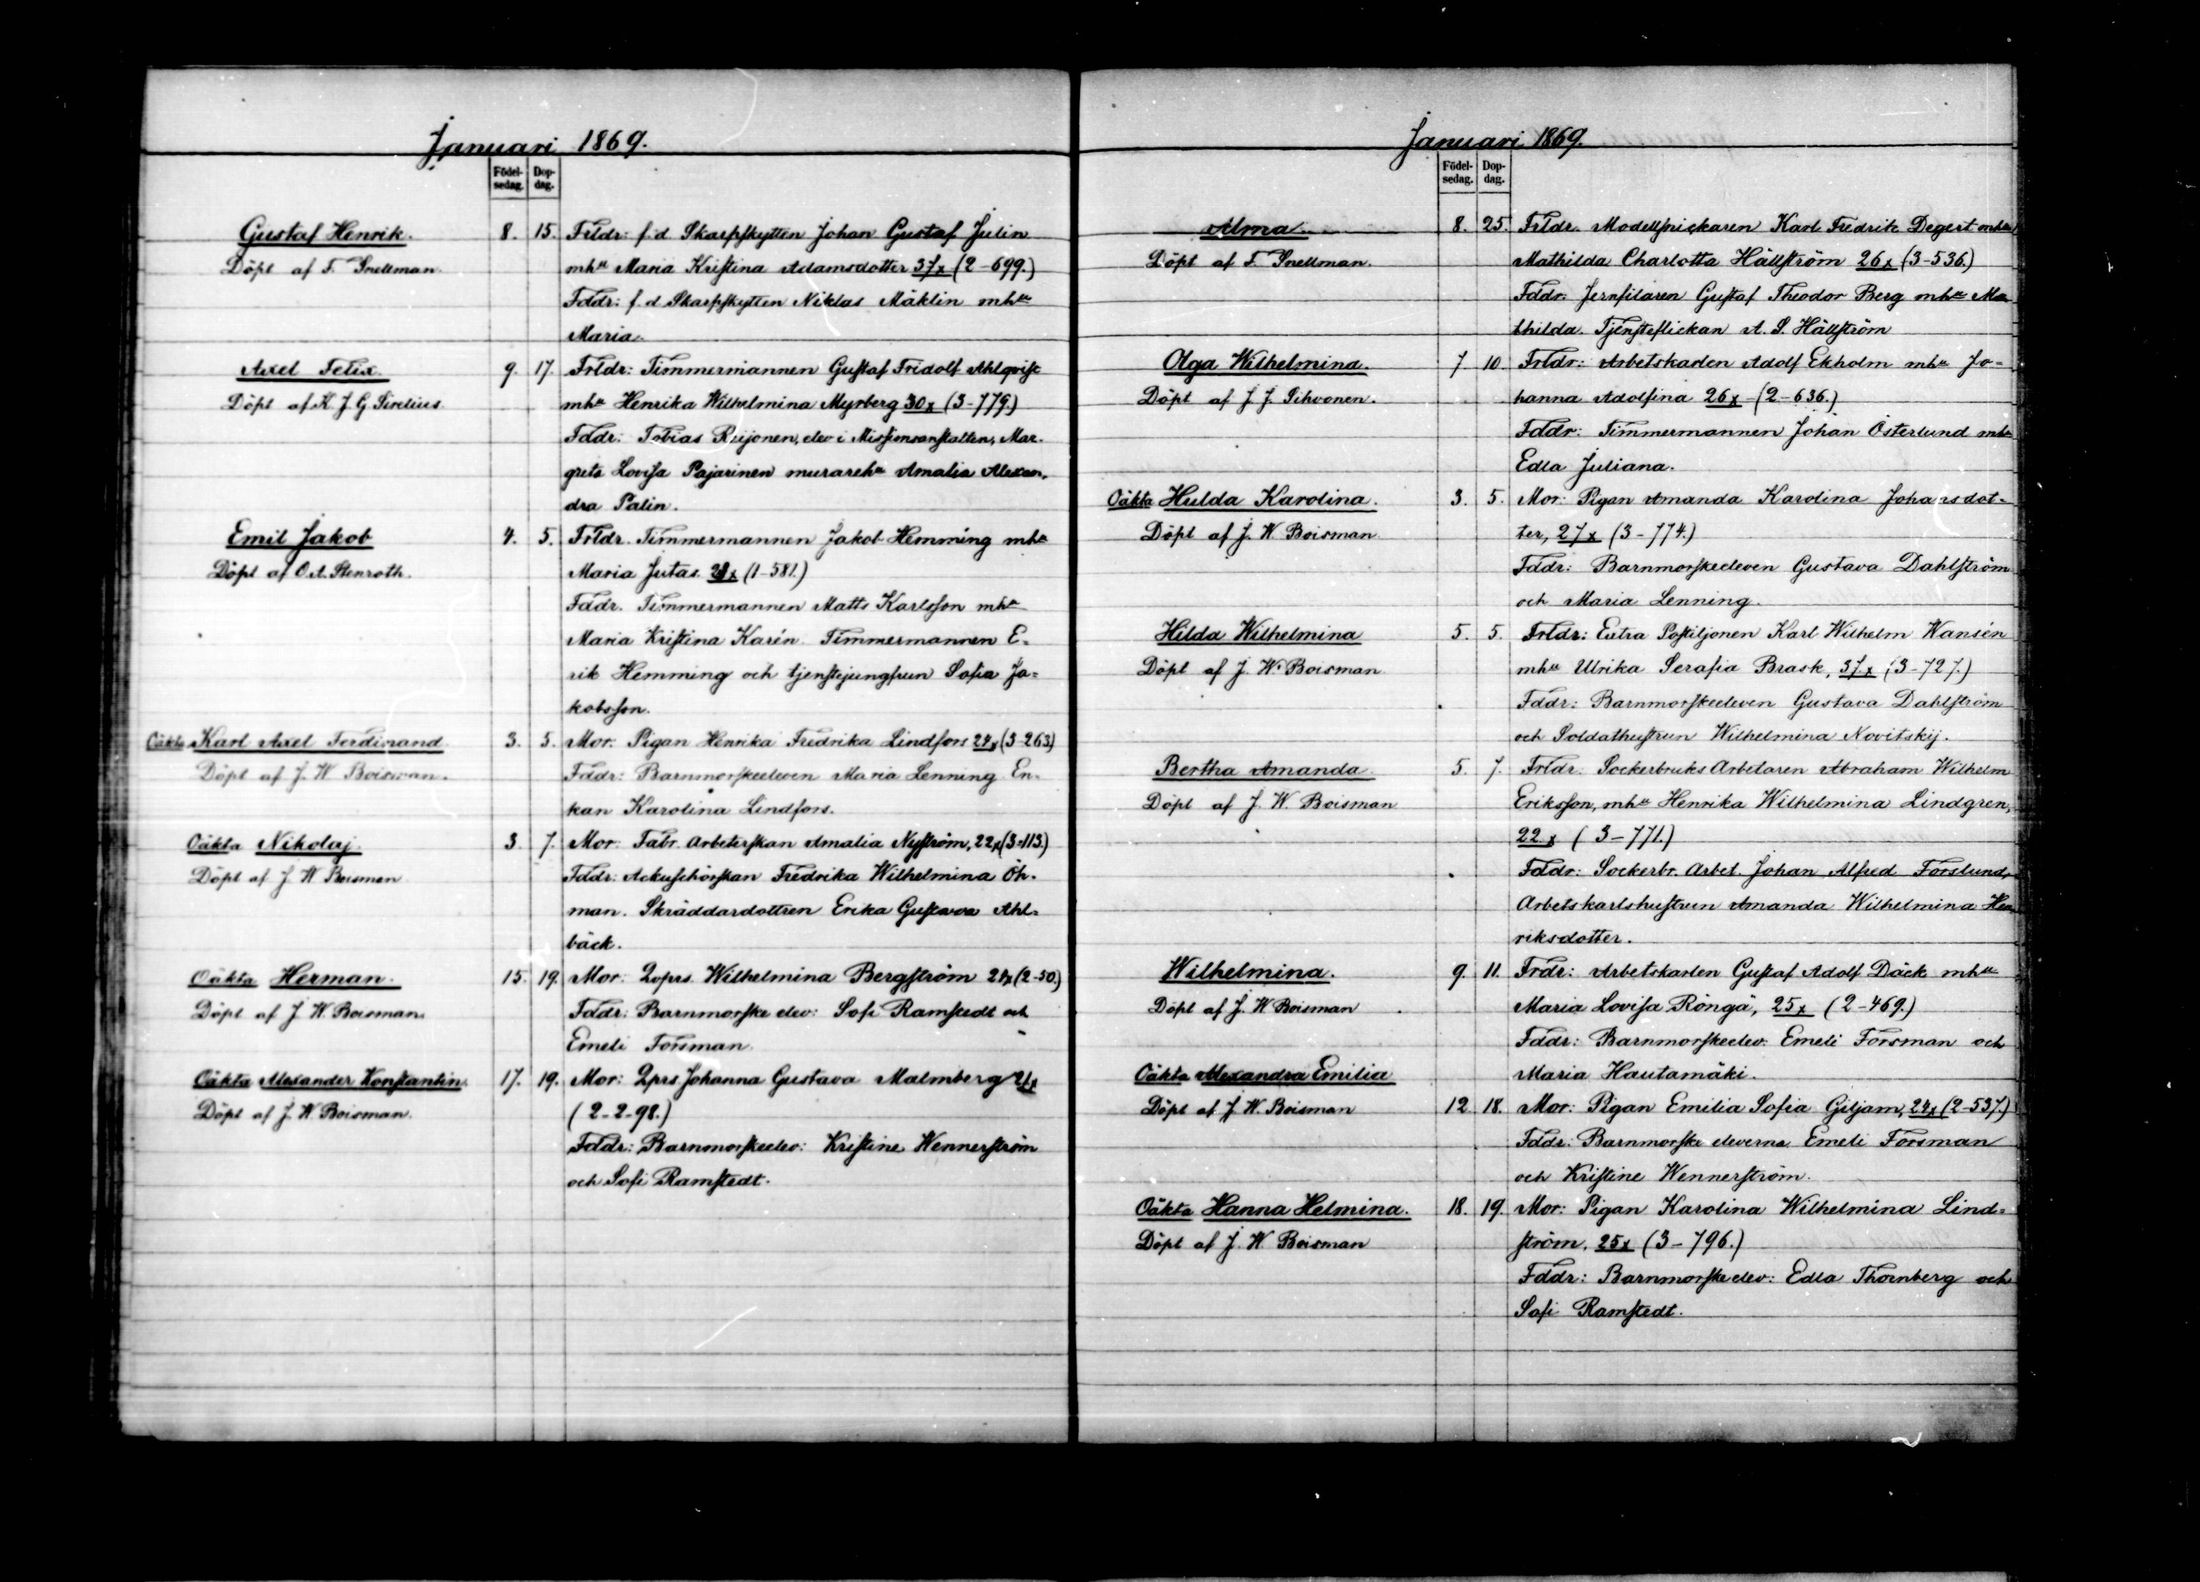 Januari 1869.
Födel- Dop-
sedag. dag.
Gustaf Henrik. 8. 15. Frldr: f. d. Skarpskytten Johan Gustaf Julin
Döpt af F. Snellman. mhu Maria Kristina Adamsdotter 37x (2-699.)
Fddr: f. d. Skarpskytten Niklas Mäklin mhu
Maria.
Axel Felix. 9. 17. Frldr: Timmermannen Gustaf Fridolf Ahlqvist
Döpt af K. J. G. Sirelius. mhu Henrika Wilhelmina Myrberg 30x (3-779.)
Fddr: Tobias Reijonen, elev i Missionsanstalten, Mar-
greta Lovisa Pajarinen murarehu Amalia Alexan-
dra Palin.
Emil Jakob 4. 5. Frldr. Timmermannen Jakob Hemming mhu
Döpt af O. A. Stenroth. Maria Jutas. 28x (1-581.)
Fddr. Timmermannen Matts Karlsson mhu
Maria Kristina Karén. Timmermannen E-
rik Hemming och tjenstejungfrun Sofia Ja-
kobsson.
Oäkta Karl Axel Ferdinand. 3. 5. Mor: Pigan Henrika Fredrika Lindfors 24x (3-263)
Döpt af J. W. Boisman. Fddr: Barnmorskeeleven Maria Lenning. En-
kan Karolina Lindfors.
Oäkta Nikolaj. 3. 7. Mor: Fabr. Arbeterskan Amalia Nyström, 22x (3-113.)
Döpt af J. W. Boisman Fddr: Ackuschörskan Fredrika Wilhelmina Öh-
man. Skräddardottren Erika Gustava Ahl-
bäck.
Oäkta Herman. 15. 19. Mor: Qvprs. Wilhelmina Bergström 24x (2-50.)
Döpt af J. W. Boisman. Fddr: Barnmorske elev: Sofi Ramstedt och
Emeli Forsman.
Oäkta Alexander Konstantin. 17. 19. Mor: Qprs Johanna Gustava Malmberg 21x
Döpt af J. W. Boisman. (2-2-98.)
Fddr: Barnmorskeelev: Kristine Wennerström
och Sofi Ramstedt.
Januari 1869.
Födel- Dop-
sedag. dag.
Alma 8. 25. Frldr. Modellsnickaren Karl Fredrik Degert mhu
Döpt af F. Snellman. Mathilda Charlotta Hällström 26x (3-536.)
Fddr. Jernfilaren Gustaf Theodor Berg mhu Ma-
thilda. Tjensteflickan A. S. Hällström
Olga Wilhelmina. 7 10 Frldr: Arbetskarlen Adolf Ekholm mhu Jo-
Döpt af J. J. Sihvonen. hanna Adolfina 26x (2-636.)
Fddr: Timmermannen Johan Österlund mhu
Edla Juliana.
Oäkta Hulda Karolina. 3. 5. Mor: Pigan Amanda Karolina Johansdot-
Döpt af J. W. Boisman ter, 27x (3-774.)
Fddr: Barnmorskeeleven Gustava Dahlström
och Maria Lenning.
Hilda Wilhelmina 5. 5. Frldr: Extra Postiljonen Karl Wilhelm Wansén
Döpt af J. W. Boisman mhu Ulrika Serafia Brask, 37x (3-727.)
Fddr: Barnmorskeeleven Gustava Dahlström
och Soldathustrun Wilhelmina Novitskij.
Bertha Amanda. 5. 7. Frldr: Sockerbruks Arbetaren Abraham Wilhelm
Döpt af J. W. Boisman Eriksson, mhu Henrika Wilhelmina Lindgren,
22x (3-771.)
Fddr: Sockerbr. Arbet. Johan Alfred Forslund,
Arbetskarlshustrun Amanda Wilhelmina Hen-
riksdotter.
Wilhelmina. 9. 11. Frdr: Arbetskarlen Gustaf Adolf Däck mhu
Döpt af J. W. Boisman Maria Lovisa Röngä, 25x (2-469.)
Fddr: Barnmorskeelev: Emeli Forsman och
Oäkta Alexandra Emilia Maria Hautamäki.
Döpt af J. W. Boisman 12. 18. Mor: Pigan Emilia Sofia Giljam, 24x (2-537.)
Fddr: Barnmorske eleverna Emeli Forsman
och Kristine Wennerström.
Oäkta Hanna Helmina. 18. 19. Mor: Pigan Karolina Wilhelmina Lind-
Döpt af J. W. Boisman ström, 25x (3-796.)
Fddr: Barnmorskeelev: Edla Thornberg och
Sofi Ramstedt.